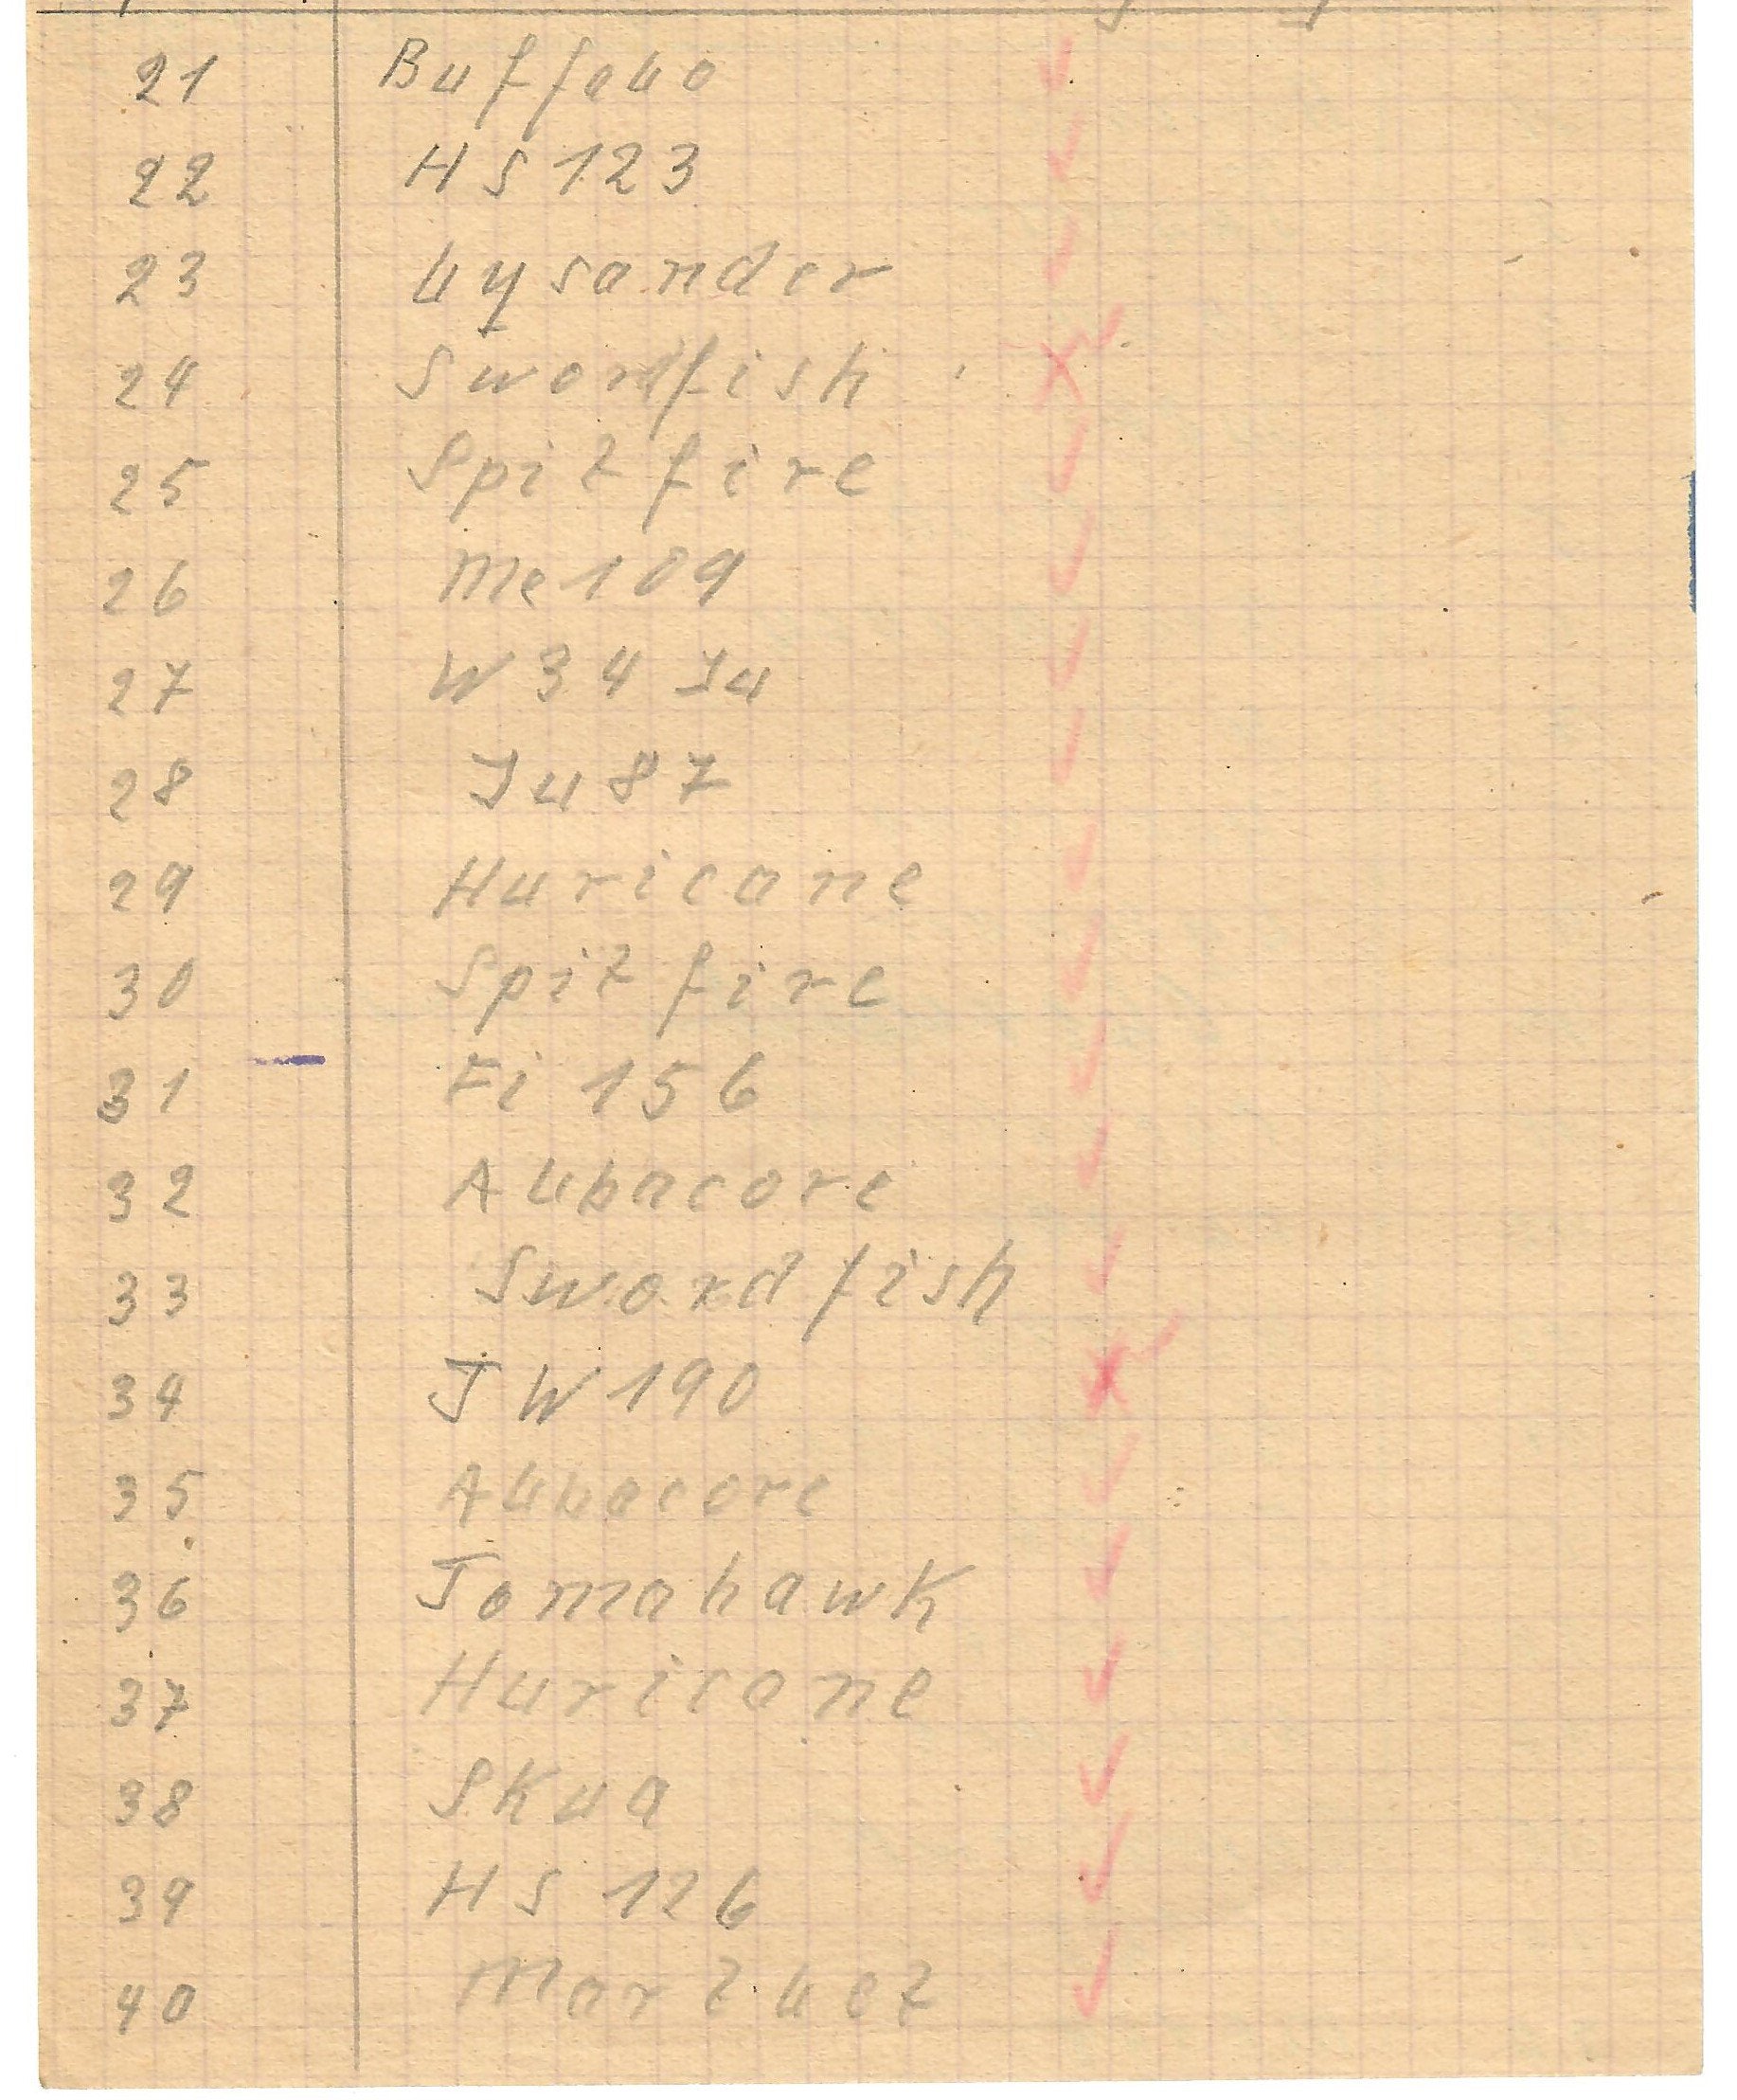 21 Buffalo
22 HS 123
23 Lysander
24 Swordfish
25 Spitfire
26 Me 109
27 W 34 Ju
28 Ju 87
29 Huricane
30 Spitfire
31 Fi 156
32 Albacore
33 Swordfish
34 FW 190
35 Albacore
36 Tomahawk
37 Huricane
38 Skua
39 HS 126
40 Martlet